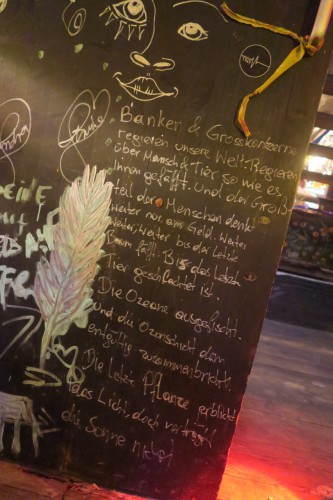 Banken & Grosskonzerne
regieren unsere Welt. Regieren
über Mensch & Tier so wie es
Ihnen gefällt. Und der Groß-
teil der Menschen denkt
weiter nur ans Geld. Weiter
weiter, weiter bis der letzte
Baum fällt. Bis das Letzte
Tier geschlachtet ist.
Die Ozeane ausgefischt.
Und die Ozonschicht dann
entgültig zusammenbricht.
Die Letzte Pflanze erblickt
das Licht, doch verträgt
die Sonne nicht